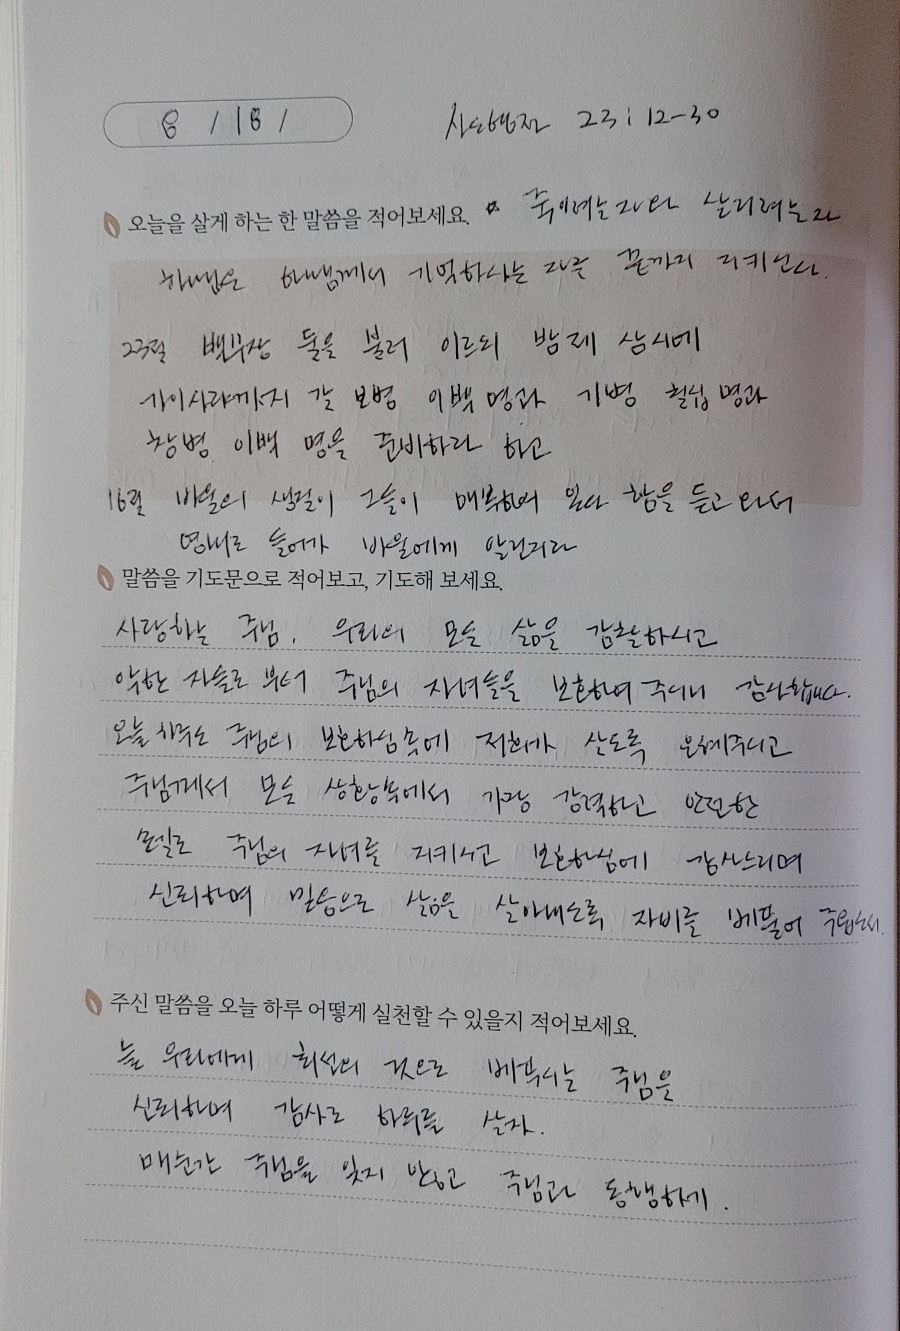 8 / 18 /
사도행전 23:12-30
오늘을 살게 하는 한 말씀을 적어보세요. * 죽이려는 자와 살리려는 자
하나님은 하나님께서 기억하시는 자를 끝까지 지키신다.
23절 백부장 둘을 불러 이르되 밤 제 삼시에
가이사랴까지 갈 보병 이백 명과 기병 칠십 명과
창병 이백 명을 준비하라 하고
16절 바울의 생질이 그들이 매복하여 있다 함을 듣고 와서
영내로 들어가 바울에게 알린지라
말씀을 기도문으로 적어보고, 기도해 보세요.
사랑하는 주님, 우리의 모든 삶을 감찰하시고
악한 자들로 부터 주님의 자녀들을 보호하여 주시니 감사합니다.
오늘 하루도 주님의 보호하심 속에 저희가 살도록 은혜주시고
주님께서 모든 상황속에서 가장 강력하고 안전한
모습으로 주님의 자녀를 지키시고 보호하심에 감사드리며
신뢰하며 믿음으로 삶을 살아내도록 자비를 베풀어 주옵소서.
주신 말씀을 오늘 하루 어떻게 실천할 수 있을지 적어보세요.
늘 우리에게 최선의 것으로 베푸시는 주님을
신뢰하며 감사로 하루를 살자.
매순간 주님을 잊지 않고 주님과 동행하세.